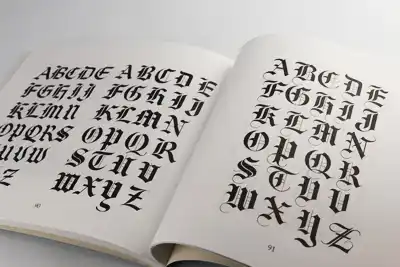 ABCDE
FGHIJ
KLMN
OPQRS
TUVW
Z
90
ABCDE
FGHIJ
KLMN
OPQR
STUV
WXYZ
ABCDE
FGHIJ
KLMN
OPQR
STUV
WXYZ
91